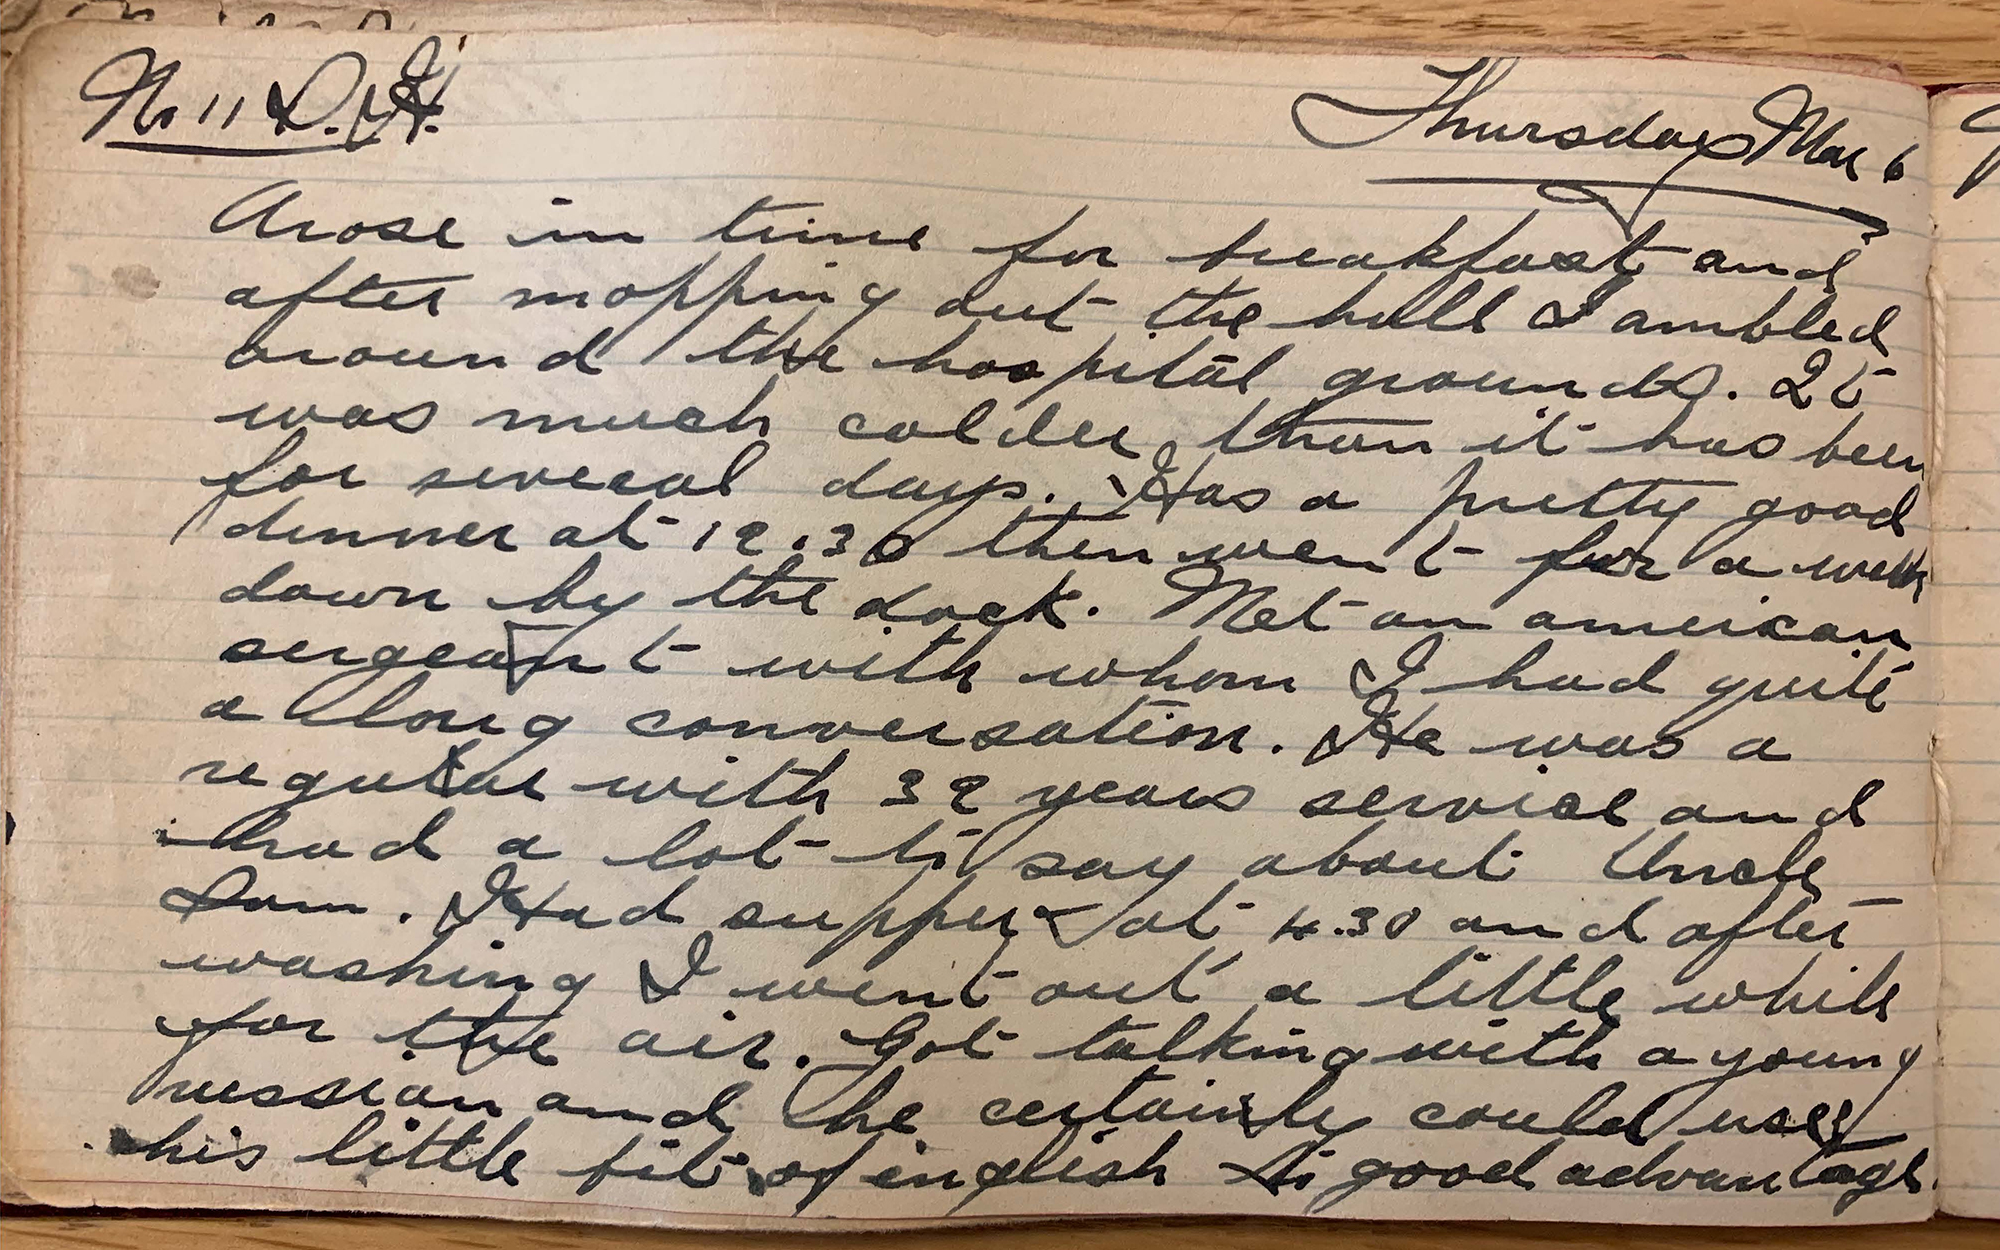 No 11 D.H.
Thursday Mar 6
Arose in time for breakfast and
after mopping out the hall I ambled
around the hospital grounds. It
was much colder than it has been
for several days. Has a pretty good
dinner at 12.30 then went for a walk
down by the dock. Met an american
sergeant with whom I had quite
a long conversation. He was a
regular with 32 years service and
had a lot to say about Uncle
Sam. Had supper at 4.30 and after
washing I went out a little while
for the air. Got talking with a young
russian and he certainly could use
his little bit of english to good advantage.